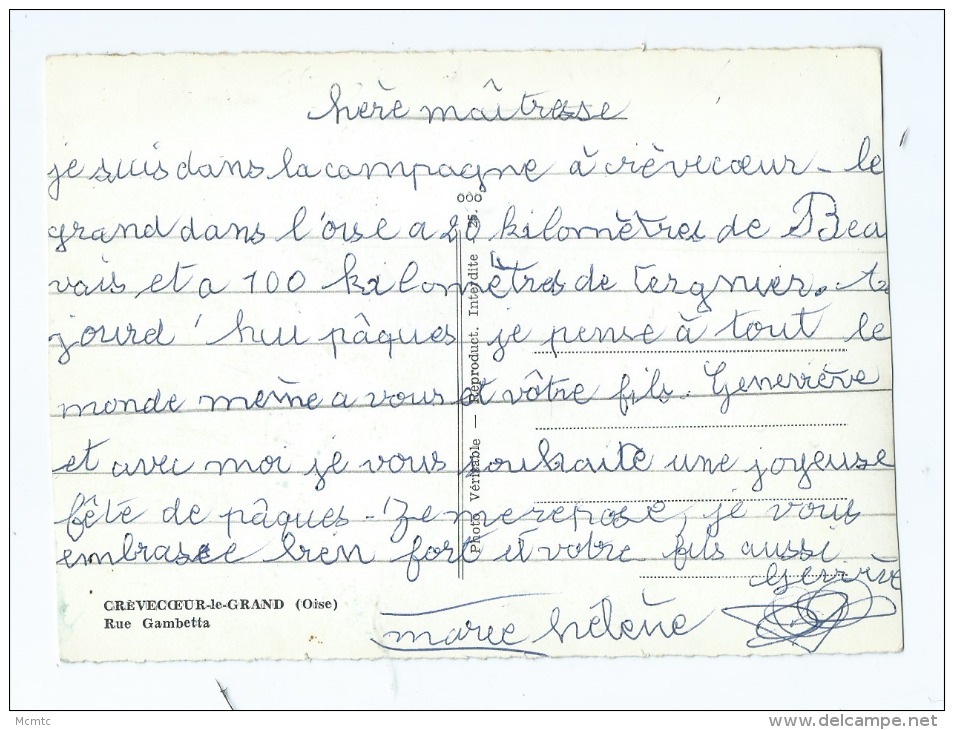 hère maîtresse
je suis dans la campagne à crèvecœur - le
grand dans l'oise a 20 kilomètres de Beau
vais et a 100 kilomètres de tergnier.
jourd'hui pâques je pense à tout le
monde même a vous et vôtre fils. Geneviève
et avec moi je vous souhaite une joyeuse
fête de pâques - Je me repose, je vous
embrasse bien fort et votre fils aussi
marie hélène
CRÈVECŒUR-le-GRAND (Oise)
Rue Gambetta
Photo Véritable — Reproduct. Interdite 25.
Mcmtc
delcampe.net